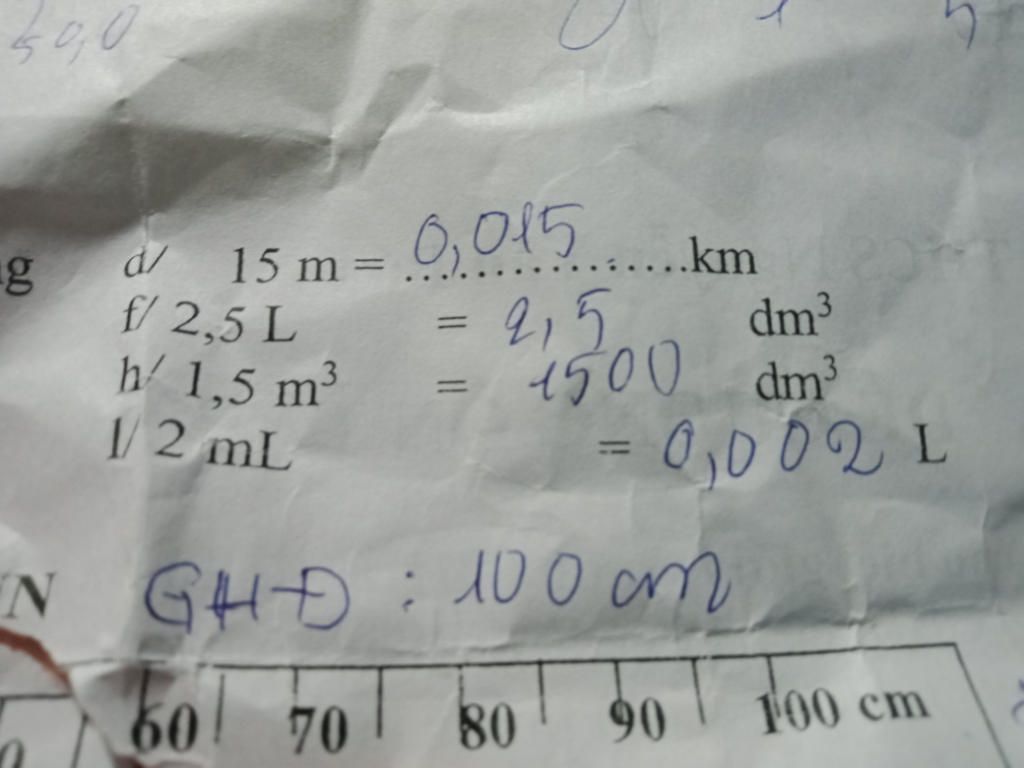 d/ 15 m = 0,015.......km
f/ 2,5 L = 2,5 dm³
h/ 1,5 m³ = 1500 dm³
l/ 2 mL = 0,002 L
N GHĐ : 100 cm
60 70 80 90 100 cm